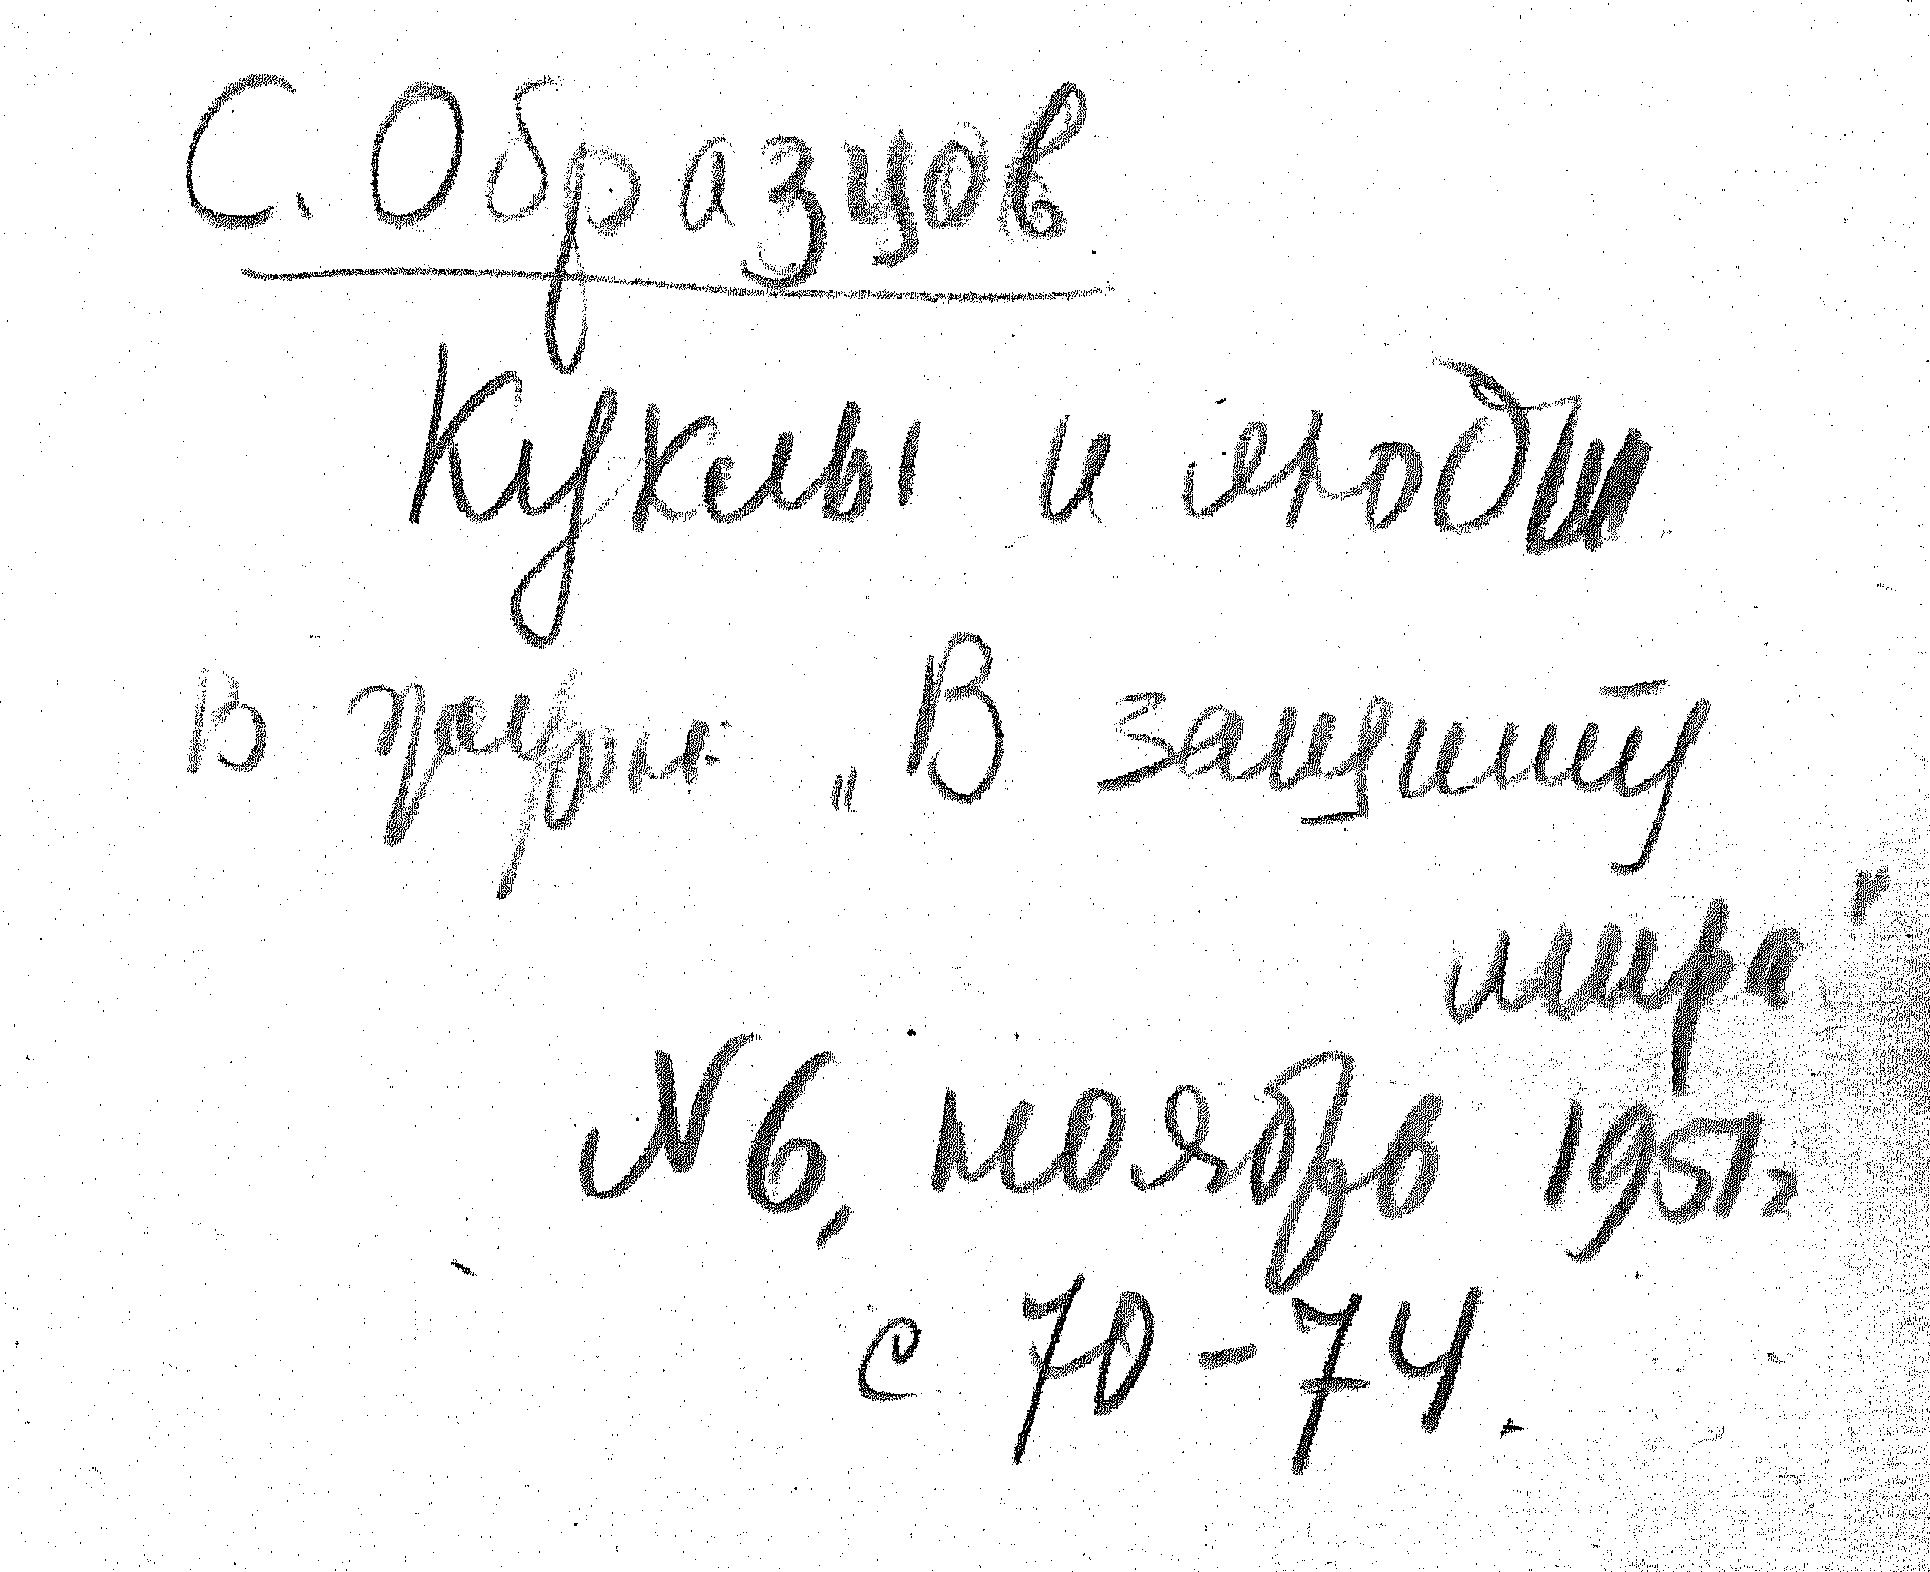 С. Образцов
Куклы и люди
В „В защиту
мира"
N 6, ноябрь 1951г
с 70-74.